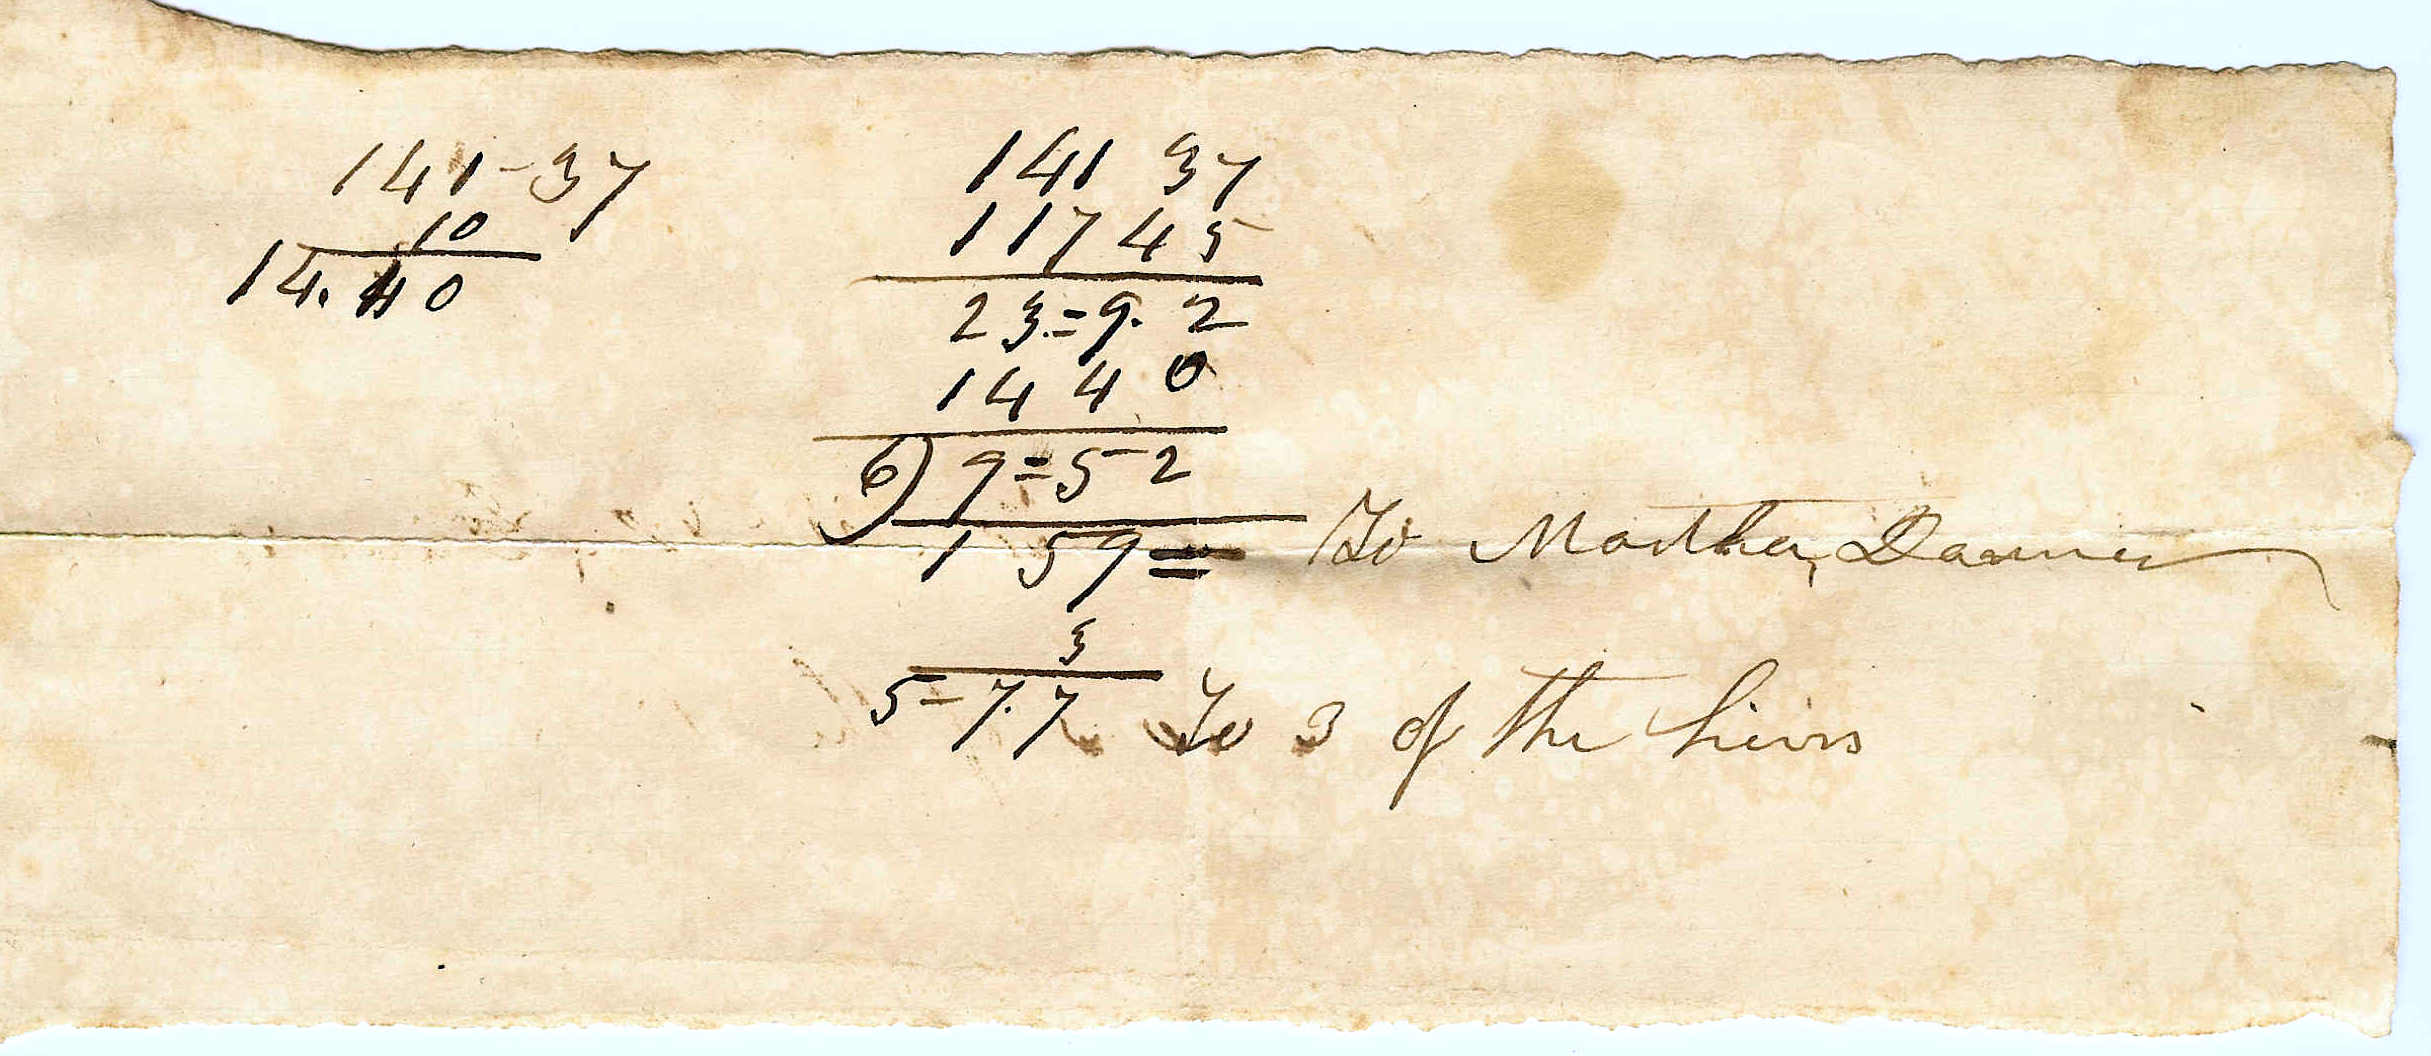 141-37
10
14.40
141 37
117 45
23=9.2
14 40
6) 9=52
1 59= To Martha
3
5-7.7 To 3 of the heirs